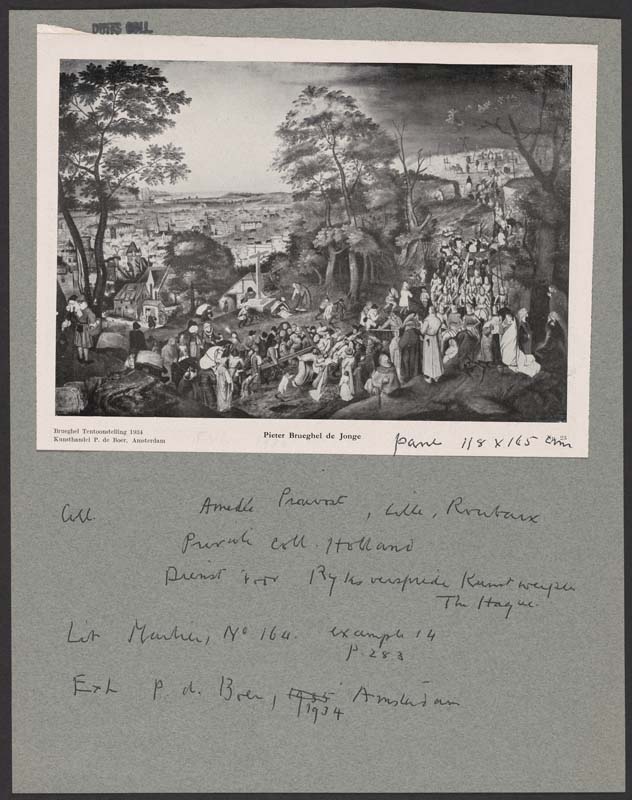 DUITS COLL.
Brueghel Tentoonstelling 1934
Kunsthandel P. de Boer, Amsterdam
Pieter Brueghel de Jonge
23
panl 118 x 165 cm
Coll. Amedée Prouvost, Lille, Roubaix
Private coll. Holland
Dienst voor Ryks verspreide Kunst werpen
The Hague.
Lit Marlier, No 164. example 14
p. 283
Exh P. d. Boer, 1935 Amsterdam
1934